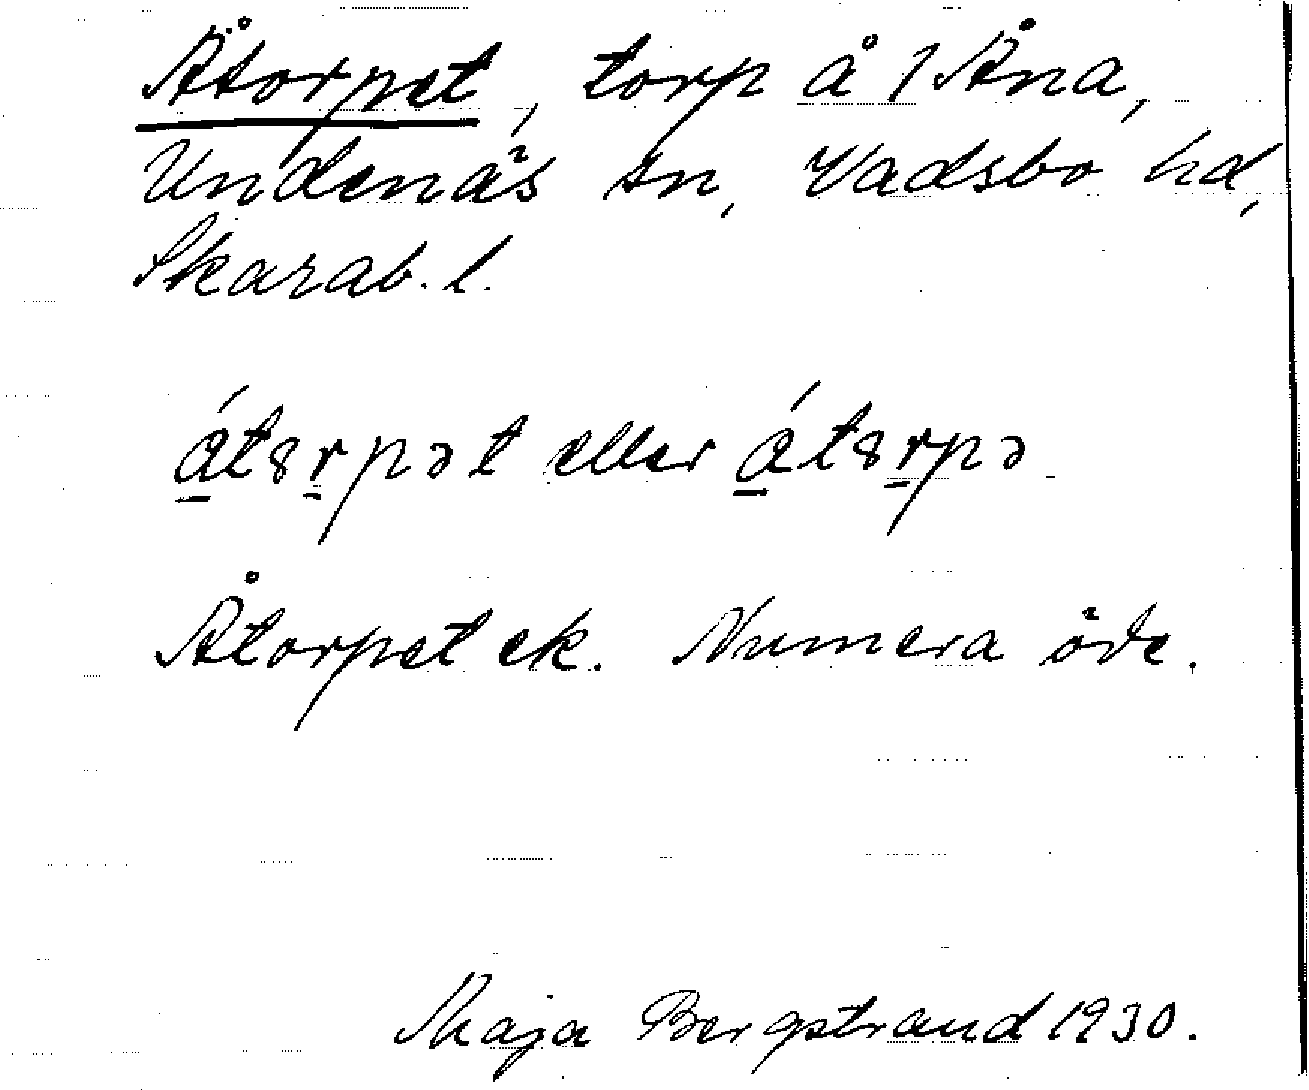 Åtorpet, torp å 1 Åna,
Undenäs sn, Vadsbo hd,
Skarab. l.
át8rpət eller át8rpə
Åtorpet ek. Numera öde.
Maja Bergstrand 1930.